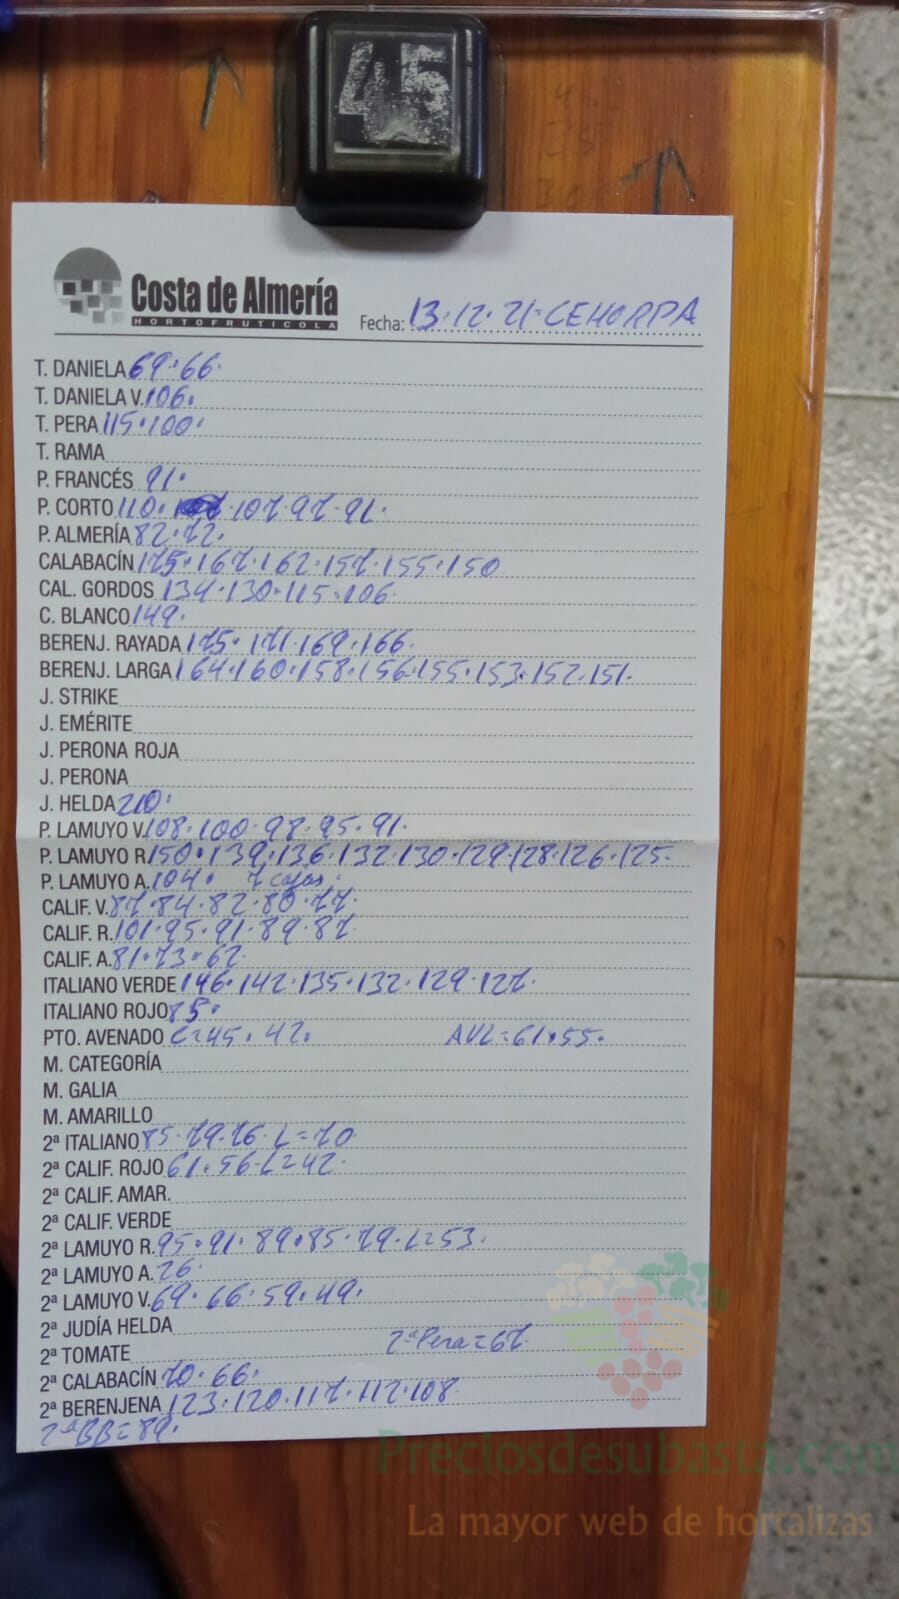 45
Costa de Almería
HORTOFRUTICOLA
Fecha: 13.12.21-CEHORPA
T. DANIELA 69.66.
T. DANIELA V. 106.
T. PERA 115.100.
T. RAMA
P. FRANCÉS 91.
P. CORTO 110. 107.97.91.
P. ALMERÍA 82.72.
CALABACÍN 175.167.162.157.155.150
CAL. GORDOS 134.130.115.106.
C. BLANCO 149.
BERENJ. RAYADA 175.171.169.166.
BERENJ. LARGA 164.160.158.156.155.153.152.151.
J. STRIKE
J. EMÉRITE
J. PERONA ROJA
J. PERONA
J. HELDA 210.
P. LAMUYO V. 108.100.98.95.91.
P. LAMUYO R. 150.139.136.132.130.129.128.126.125.
P. LAMUYO A. 104. 7 cajas.
CALIF. V. 87.84.82.80.77.
CALIF. R. 101.95.91.89.87
CALIF. A. 81.73.67.
ITALIANO VERDE 146.142.135.132.129.127.
ITALIANO ROJO 85.
PTO. AVENADO C=45.42. AVL=61.55.
M. CATEGORÍA
M. GALIA
M. AMARILLO
2ª ITALIANO 85.79.76-L=70
2ª CALIF. ROJO 61.56-L=42.
2ª CALIF. AMAR.
2ª CALIF. VERDE
2ª LAMUYO R. 95.91.89.85.79-L=53.
2ª LAMUYO A. 76.
2ª LAMUYO V. 69.66.59.49.
2ª JUDÍA HELDA
2ª TOMATE 2ª Pera=67.
2ª CALABACÍN 70.66.
2ª BERENJENA 123.120.117.112.108
2ª BB=89.
Preciosdesubasta.com
La mayor web de hortalizas